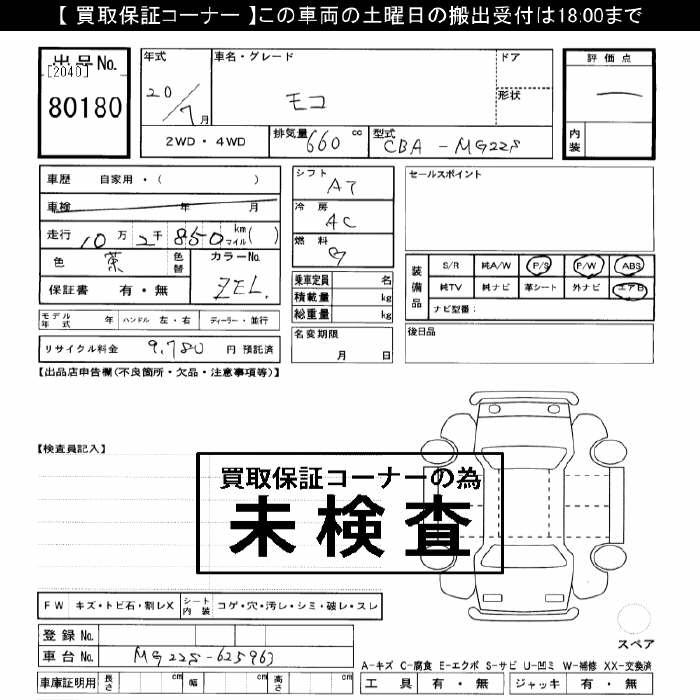 【 買取保証コーナー 】この車両の土曜日の搬出受付は18:00まで
出品No.
[2040]
80180
年式
20/7月
車名・グレード
モコ
ドア
形状
2WD・4WD
排気量 660 cc
型式 CBA-MG22S
評価点
—
内装
車歴 自家用・( )
車検 年 月
走行 10万2千850 km マイル( )
色 茶 色替
カラーNo. ZEL.
保証書 有・無
シフト AT
冷房 AC
燃料
乗車定員 名
積載量 kg
総重量 kg
セールスポイント
装備品
S/R 純A/W P/S P/W ABS
純TV 純ナビ 革シート 外ナビ エアB
ナビ型番:
モデル年式 年 ハンドル 左・右 ディーラー・並行
リサイクル料金 9,780 円 預託済
名変期限 月 日
後日品
【出品店申告欄(不良箇所・欠品・注意事項等)】
【検査員記入】
買取保証コーナーの為
未検査
FW キズ・トビ石・割レX シート内装 コゲ・穴・汚レ・シミ・破レ・スレ
登録No.
車台No. MG22S-625963
車庫証明用 長さ cm 幅 cm 高さ cm
スペア
A-キズ C-腐食 E-エクボ S-サビ U-凹ミ W-補修 XX-交換済
工具 有・無 ジャッキ 有・無